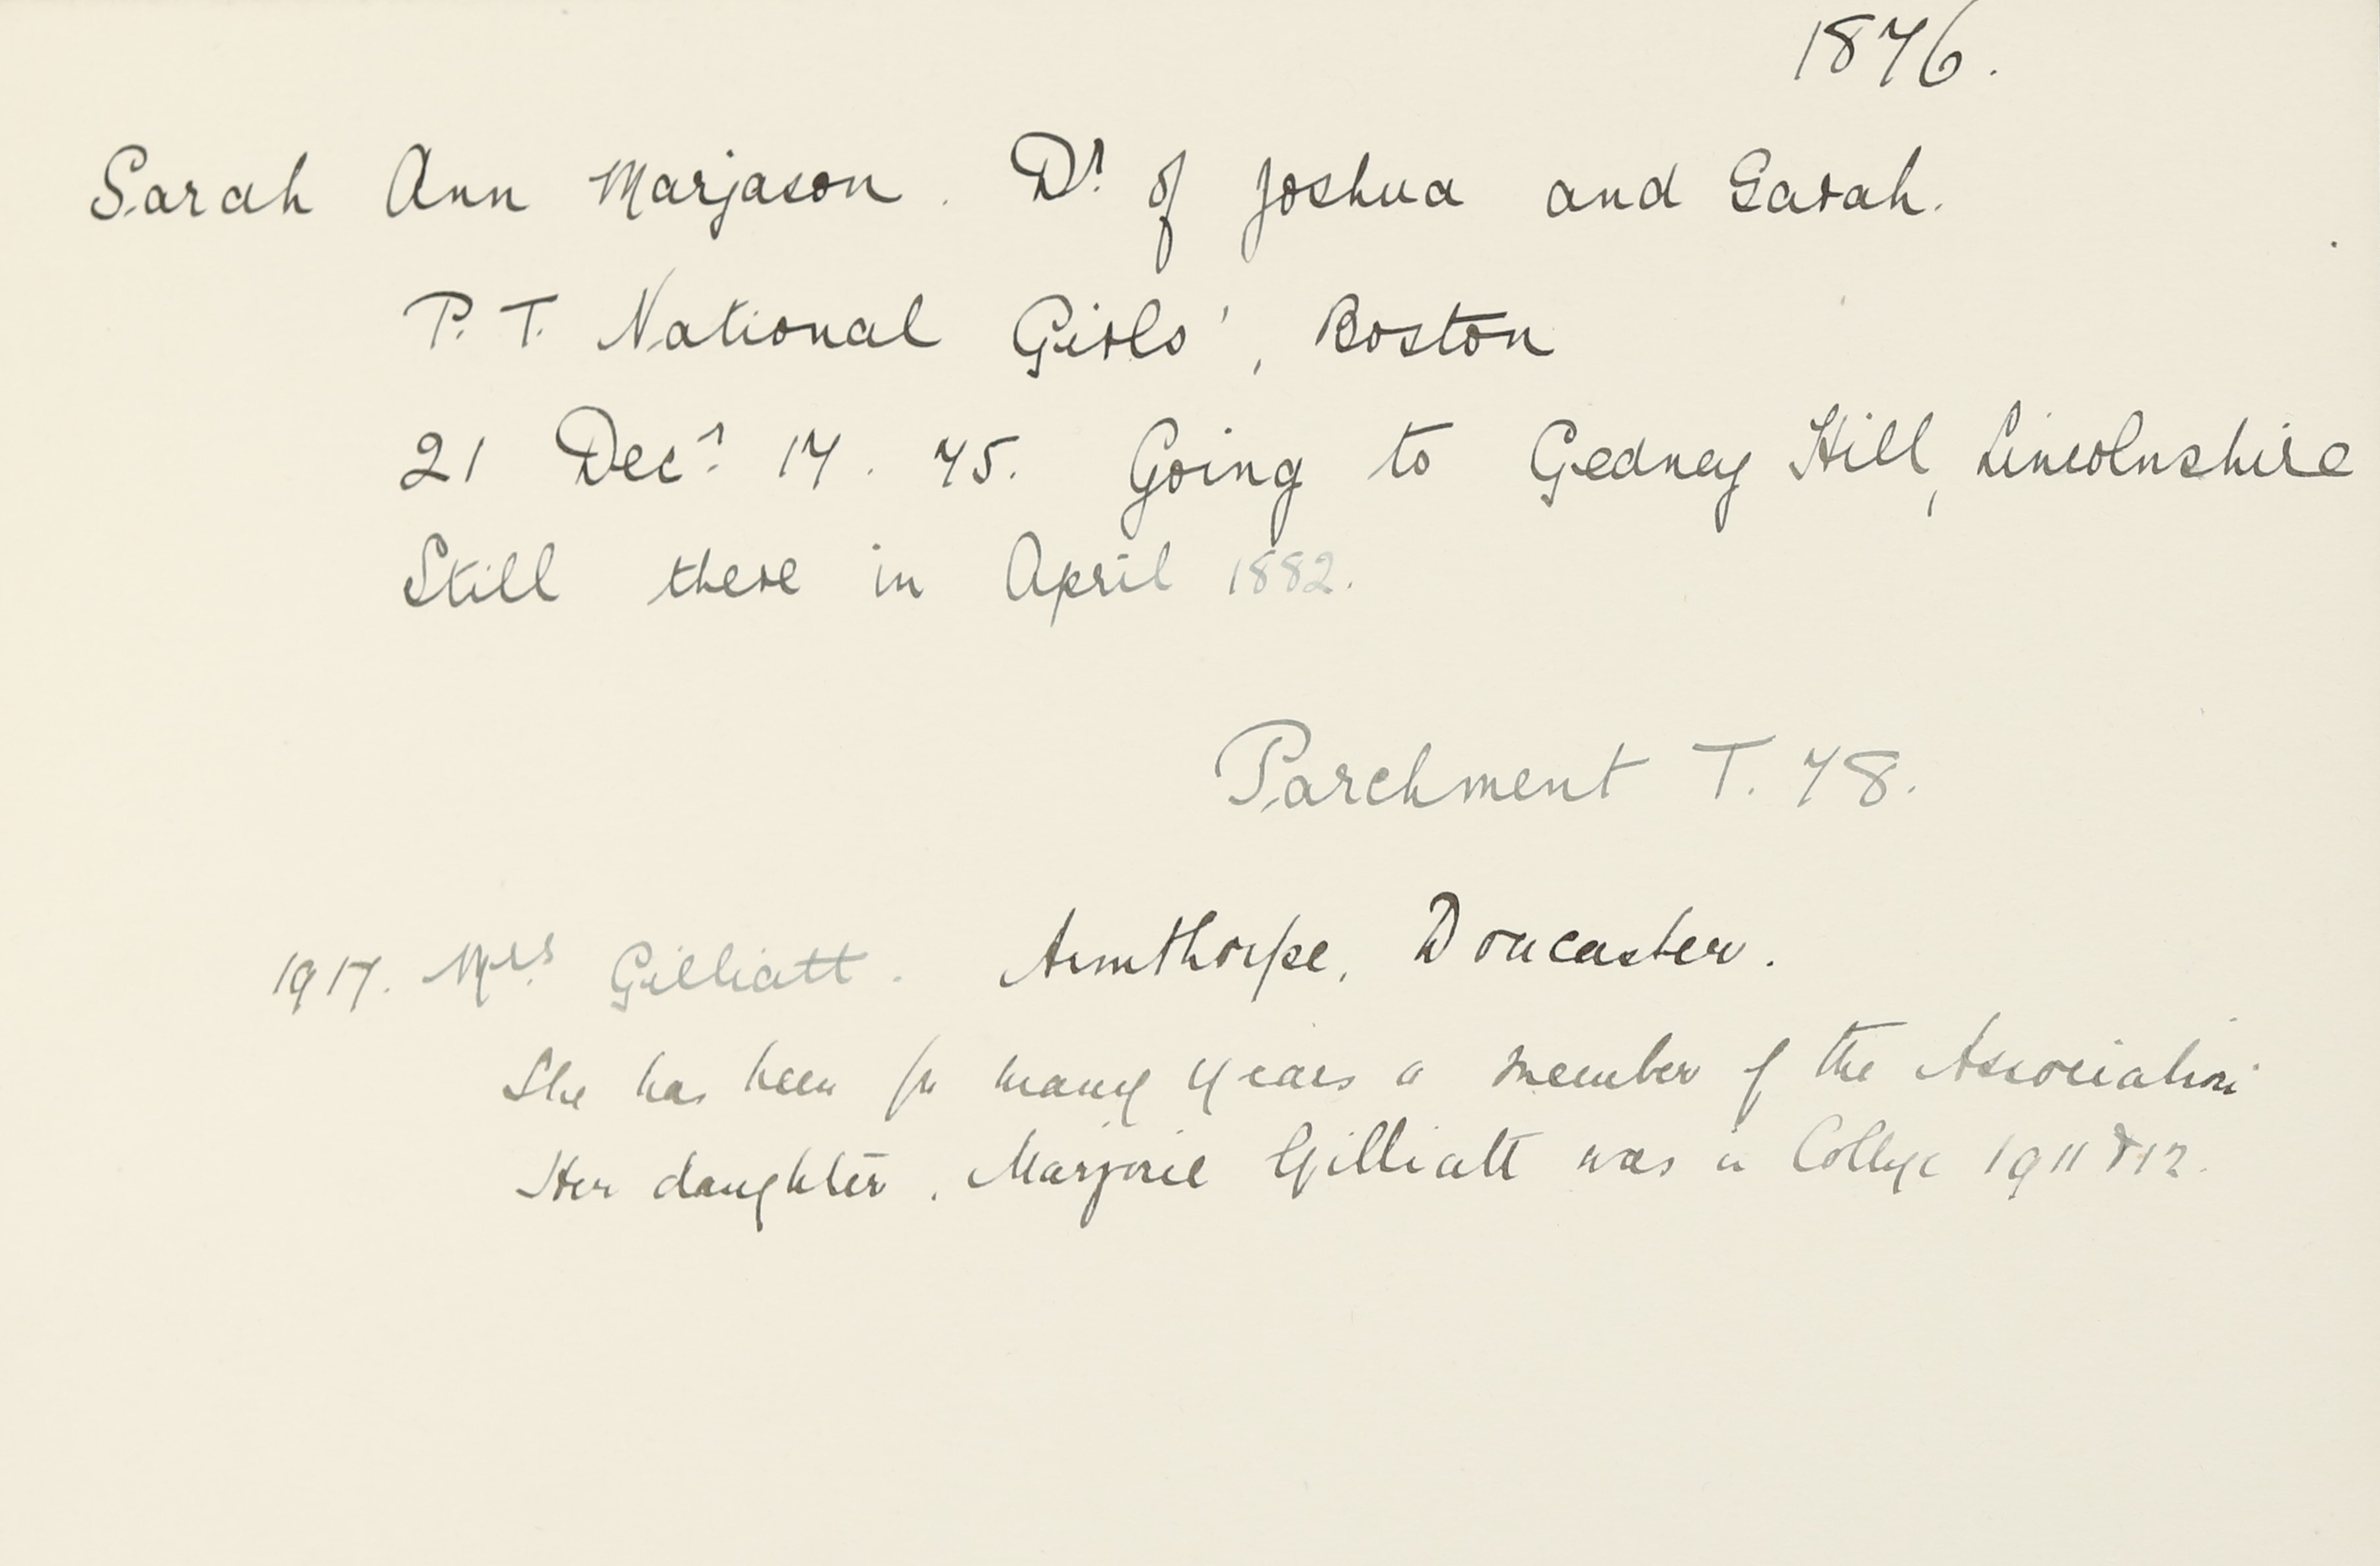 1876.
Sarah Ann Marjason. Dr. of Joshua and Sarah.
P. T. National Girls', Boston
21 Decr. 17. 75. Going to Gedney Hill, Lincolnshire
Still there in April 1882.
Parchment T. 78.
1917. Mrs. Gilliatt. Armthorpe, Doncaster.
She has been for many years a member of the Association
Her daughter, Marjorie Gilliatt was in College 1911 & 12.